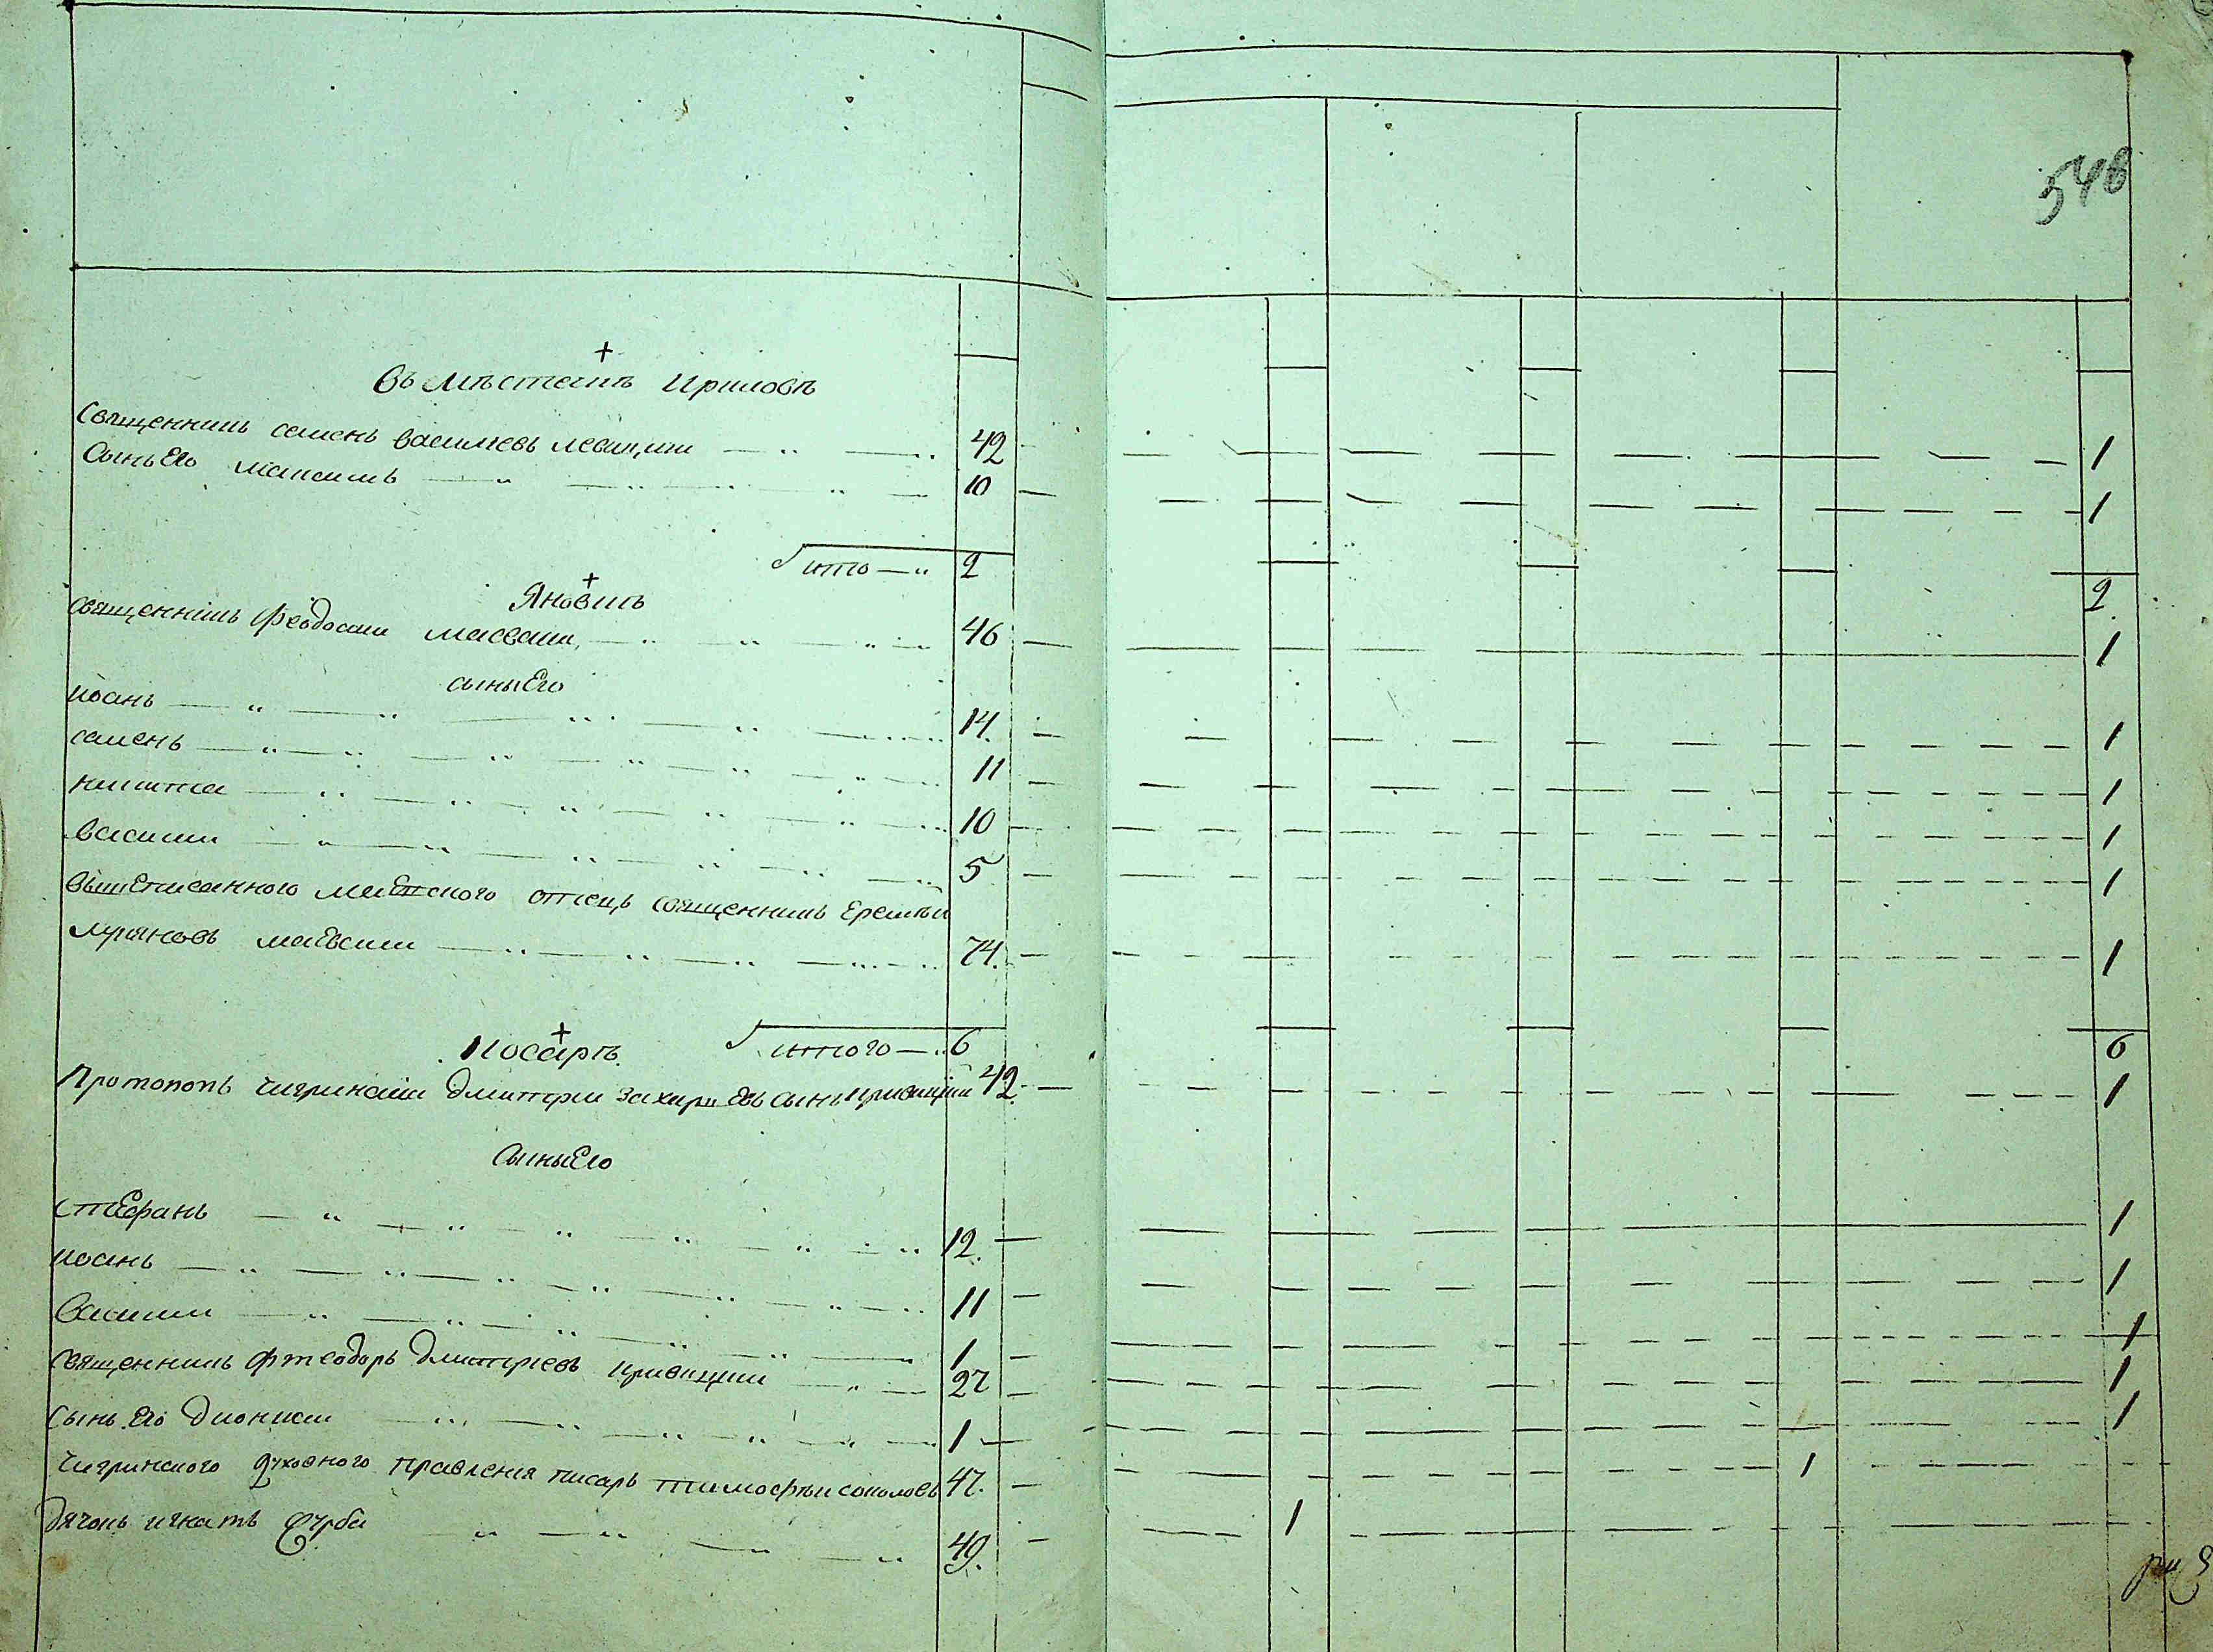 548
въ мѣстечкѣ Криловѣ
Священникъ семенъ василіевъ левицки 42 1
Сынъ Его максимъ 10 1
итго 2 2
Яновкѣ
священникъ феодосии 46 1
сыны Его
иоанъ 14. 1
семенъ 11 1
никита 10 1
василии 5 1
вышеписанного отецъ священникъ Еремѣи
лукяновъ 74. 1
итого 6 6
Косарѣ
Протопопъ чигринскии дмитрии захариевъ сынъ кривицкии 42. 1
Сыны Его
стефанъ 12. 1
иоанъ 11 1
василии 1 1
священникъ фтеодоръ дмитриевъ кривицкии 27 1
сынъ Его дионисии 1 1
чигринского духовного правления писарь тимофѣи соколовъ 47. 1
дячокъ игнатъ 49. 1